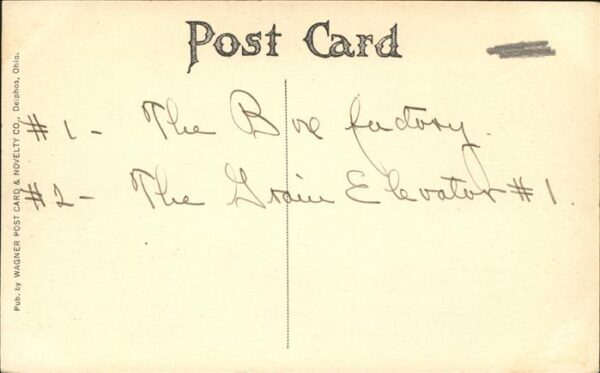 Post Card
#1- The Box factory.
#2- The Grain Elevator #1.
Pub. by WAGNER POST CARD & NOVELTY CO., Delphos, Ohio.